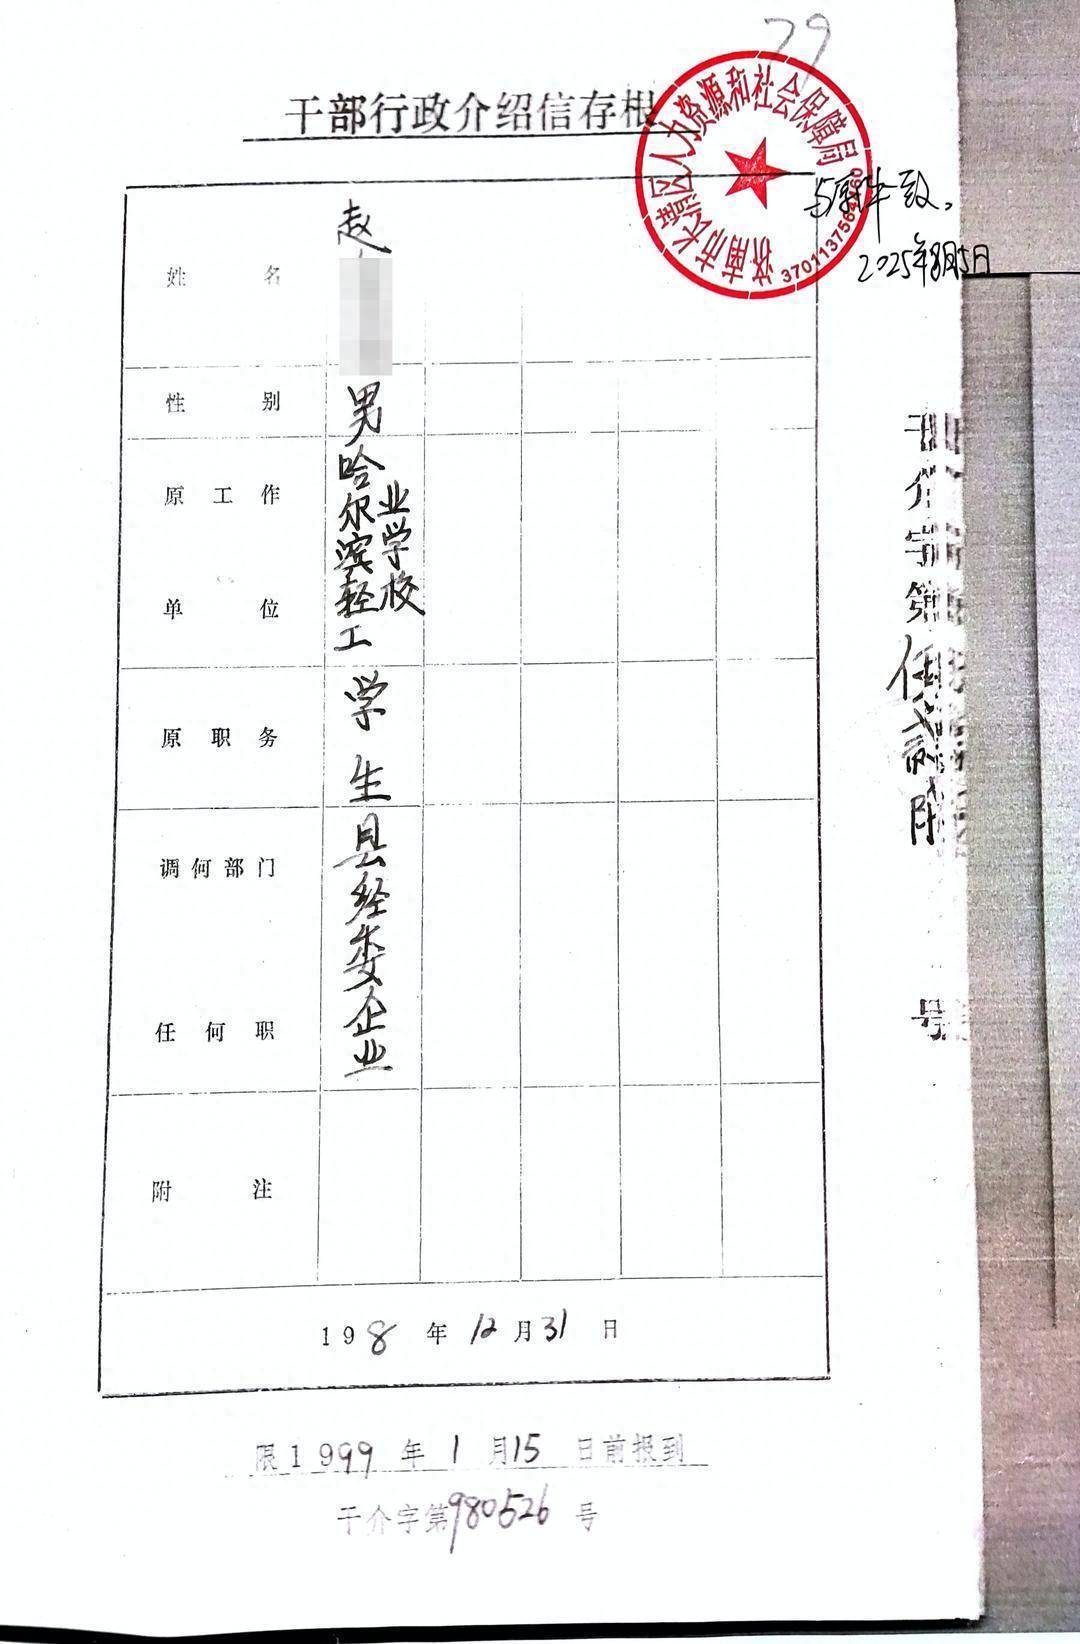 79
干部行政介绍信存根
济南市长清区人力资源和社会保障局
3701137564860
与原件一致。
2025年8月5日
姓名 赵
性别 男
原工作单位 哈尔滨轻工业学校
原职务 学生
调何部门任何职 县经委企业
附注
198年12月31日
干介字第伍
号
限1999年1月15日前报到
干介字第980526号